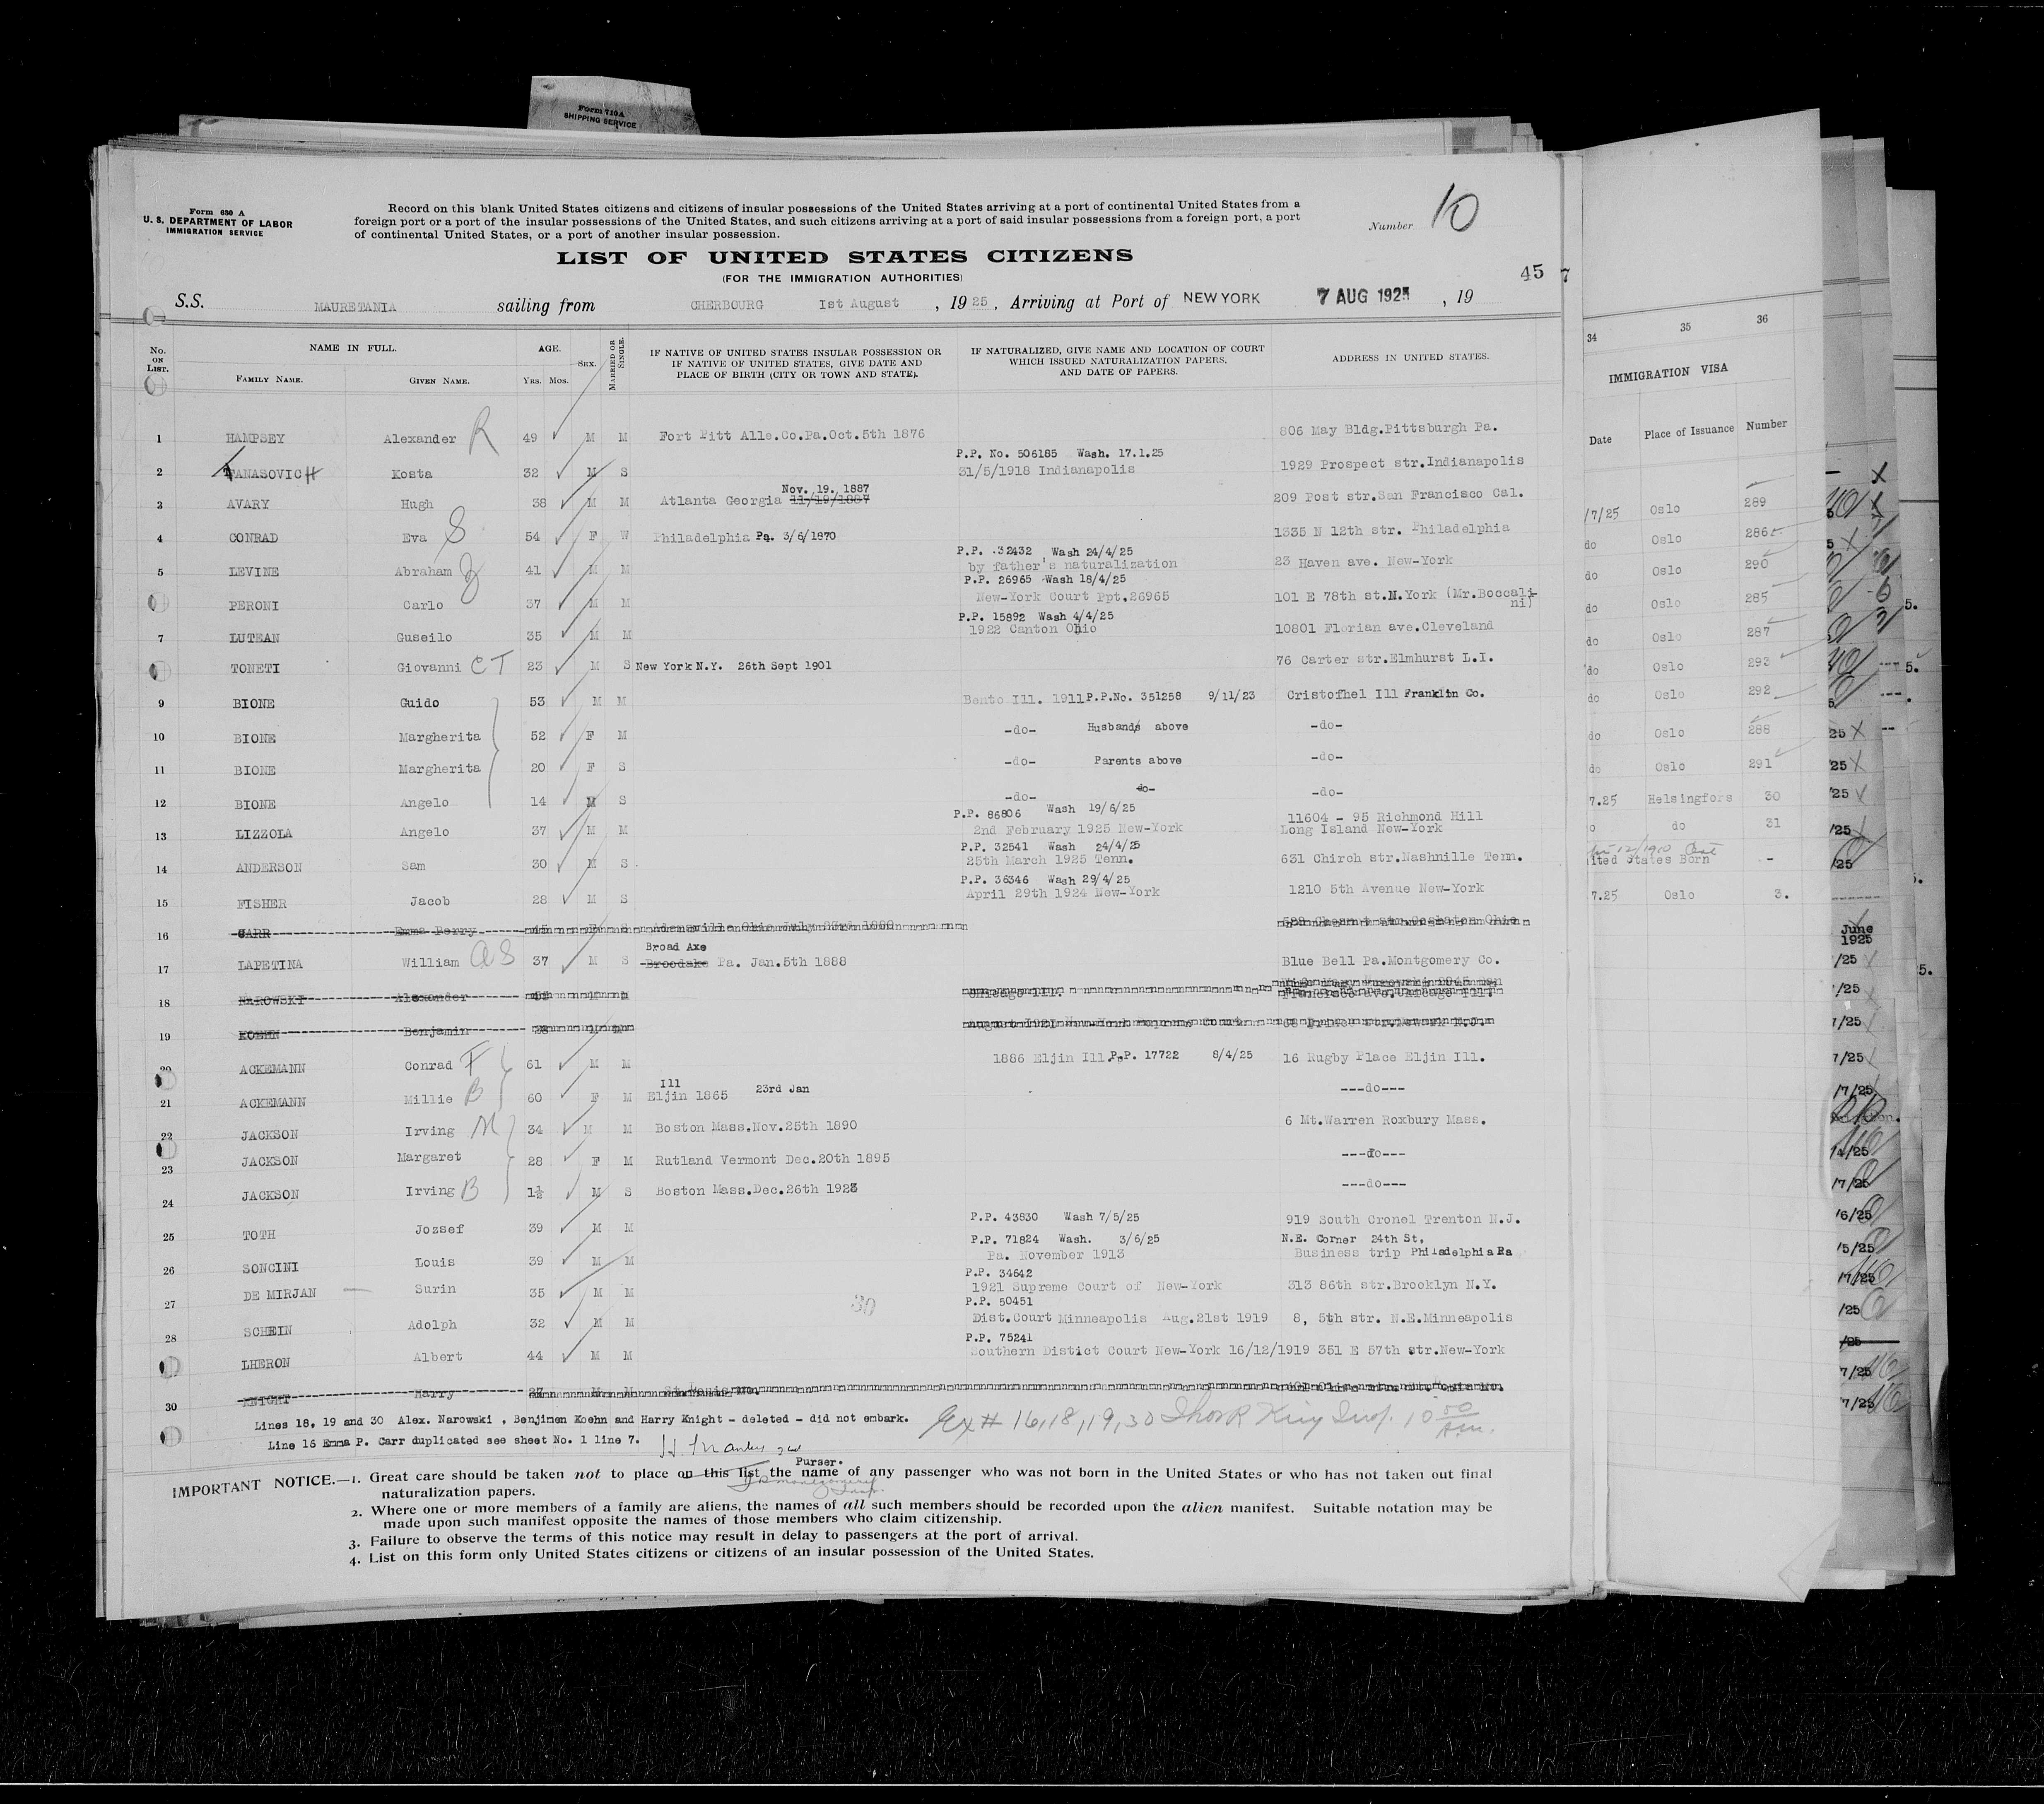 Form 710A
SHIPPING SERVICE
Form 630 A
U. S. DEPARTMENT OF LABOR
IMMIGRATION SERVICE
Record on this blank United States citizens and citizens of insular possessions of the United States arriving at a port of continental United States from a
foreign port or a port of the insular possessions of the United States, and such citizens arriving at a port of said insular possessions from a foreign port, a port
of continental United States, or a port of another insular possession.
Number 10
LIST OF UNITED STATES CITIZENS
(FOR THE IMMIGRATION AUTHORITIES)
45
7
S.S. MAURETANIA sailing from CHERBOURG 1st August , 1925 , Arriving at Port of NEW YORK 7 AUG 1925 , 19
No. ON LIST. NAME IN FULL. AGE. SEX. MARRIED OR SINGLE. IF NATIVE OF UNITED STATES INSULAR POSSESSION OR IF NATIVE OF UNITED STATES, GIVE DATE AND PLACE OF BIRTH (CITY OR TOWN AND STATE). IF NATURALIZED, GIVE NAME AND LOCATION OF COURT WHICH ISSUED NATURALIZATION PAPERS, AND DATE OF PAPERS. ADDRESS IN UNITED STATES.
FAMILY NAME. GIVEN NAME. YRS. MOS.
1 HAMPSEY Alexander R 49 M M Fort Pitt Alle.Co.Pa.Oct.5th 1876 806 May Bldg.Pittsburgh Pa.
P.P. No. 506185 Wash. 17.1.25
2 TANASOVICH Kosta 32 M S 31/5/1918 Indianapolis 1929 Prospect str.Indianapolis
Nov. 19. 1887
3 AVARY Hugh 38 M M Atlanta Georgia 11/19/1887 209 Post str.San Francisco Cal.
4 CONRAD Eva S 54 F W Philadelphia Pa. 3/6/1870 1335 N 12th str. Philadelphia
P.P. 32432 Wash 24/4/25
5 LEVINE Abraham 41 M M by father's naturalization 23 Haven ave. New-York
P.P. 26965 Wash 18/4/25
PERONI Carlo 37 M M New-York Court Ppt.26965 101 E 78th st.N.York (Mr.Boccali-
ni)
P.P. 15892 Wash 4/4/25
7 LUTEAN Guseilo 35 M M 1922 Canton Ohio 10801 Florian ave.Cleveland
TONETI Giovanni C T 23 M S New York N.Y. 26th Sept 1901 76 Carter str.Elmhurst L.I.
9 BIONE Guido 53 M M Bento Ill. 1911 P.P.No. 351258 9/11/23 Cristofhel Ill Franklin Co.
10 BIONE Margherita 52 F M -do- Husbands above -do-
11 BIONE Margherita 20 F S -do- Parents above -do-
12 BIONE Angelo 14 M S -do- do- -do-
P.P. 86806 Wash 19/6/25
13 LIZZOLA Angelo 37 M M 2nd February 1925 New-York 11604 - 95 Richmond Hill
Long Island New-York
P.P. 32541 Wash 24/4/25
14 ANDERSON Sam 30 M S 25th March 1925 Tenn. 631 Chirch str.Nashnille Tenn.
P.P. 36346 Wash 29/4/25
15 FISHER Jacob 28 M S April 29th 1924 New-York 1210 5th Avenue New-York
16 CARR Emma Perry
Broad Axe
17 LAPETINA William A S 37 M S Broodake Pa. Jan.5th 1888 Blue Bell Pa.Montgomery Co.
18 NAROWSKI Alexander Chicago Ill.
19 KOEHN Benjamin
20 ACKEMANN Conrad F 61 M M 1886 Eljin Ill. P.P. 17722 8/4/25 16 Rugby Place Eljin Ill.
Ill 23rd Jan
21 ACKEMANN Millie B 60 F M Eljin 1865 ---do---
22 JACKSON Irving M 34 M M Boston Mass.Nov.25th 1890 6 Mt.Warren Roxbury Mass.
23 JACKSON Margaret 28 F M Rutland Vermont Dec.20th 1895 ---do---
24 JACKSON Irving B 1½ M S Boston Mass.Dec.26th 1923 ---do---
25 TOTH Jozsef 39 M M P.P. 43830 Wash 7/5/25 919 South Cronel Trenton N.J.
P.P. 71824 Wash. 3/6/25 N.E. Corner 24th St,
26 SONCINI Louis 39 M M Pa. November 1913 Business trip Philadelphia Pa
P.P. 34642
27 DE MIRJAN Surin 35 M M 1921 Supreme Court of New-York 313 86th str.Brooklyn N.Y.
30
P.P. 50451
28 SCHEIN Adolph 32 M M Dist.Court Minneapolis Aug.21st 1919 8, 5th str. N.E.Minneapolis
P.P. 75241
LHERON Albert 44 M M Southern Distict Court New-York 16/12/1919 351 E 57th str.New-York
30 KNIGHT Harry 27 M M
Lines 18, 19 and 30 Alex. Narowski , Benjimen Koehn and Harry Knight - deleted - did not embark.
Line 16 Emma P. Carr duplicated see sheet No. 1 line 7.
Ex # 16,18,19,30 King Insp. 10 50 Am.
Purser.
IMPORTANT NOTICE.—1. Great care should be taken not to place on this list the name of any passenger who was not born in the United States or who has not taken out final
naturalization papers.
2. Where one or more members of a family are aliens, the names of all such members should be recorded upon the alien manifest. Suitable notation may be
made upon such manifest opposite the names of those members who claim citizenship.
3. Failure to observe the terms of this notice may result in delay to passengers at the port of arrival.
4. List on this form only United States citizens or citizens of an insular possession of the United States.
34 35 36
IMMIGRATION VISA
Date Place of Issuance Number
/7/25 Oslo 289
do Oslo 286
do Oslo 290
do Oslo 285
do Oslo 287
do Oslo 293
do Oslo 292
do Oslo 288
do Oslo 291
7.25 Helsingfors 30
do 31
ited States Born -
7.25 Oslo 3.
June
1925